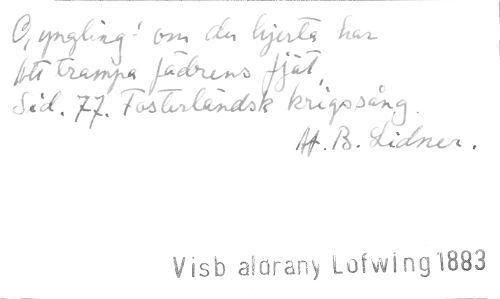 O, yngling! om du hjerta har
Att trampa fädrens fjät,
Sid. 77. Fosterländsk krigssång.
Af. B. Lidner.
Visb aldrany Lofwing 1883